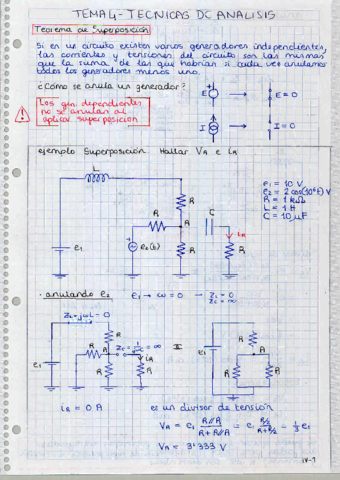 TEMA 4 - TECNICAS DC ANALISIS
Teorema de Superposición
Si en un circuito existen varios generadores independientes,
las corrientes y tensiones del circuito son las mismas
que la suma de las que habrían si cada vez anulamos
todos los generadores menos uno.
¿Cómo se anula un generador?
E
E = 0
Los gen dependientes
no se anulan al
aplicar superposicion
I
I = 0
ejemplo Superposición Hallar VA e iR
L
R
e1 = 10 V
e2 = 2 cos(10⁴t) V
R = 1 kΩ
L = 1 H
C = 10 μF
R
A
C
iR
e1
e2(t)
R
R
· anulando e2
e1 → ω = 0 → ZL = 0
ZC = ∞
ZL = jωL = 0
R
R
A
ZC = ∞
iR
e1
R
R
e1
R
A
R
R
iR = 0 A
es un divisor de tensión
VA = e1 R//R / R + R//R = e1 R/2 / R + R/2 = 1/3 e1
VA = 3'333 V
IV-1